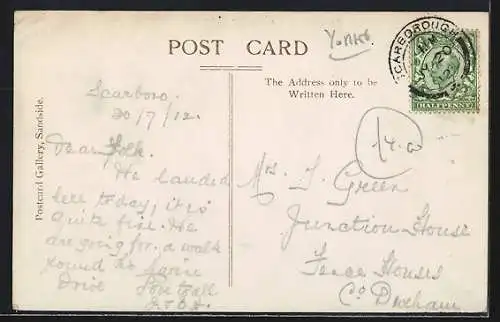 Yorks
POST CARD
The Address only to be
Written Here.
SCARBOROUGH
HALFPENNY
Postcard Gallery, Sandside.
Scarboro.
30/7/12.
Dear Folk.
We landed
here today, it is
quite fine. We
are going for a walk
round the Marine
Drive
Mrs. J. Green
Junction House
Fence Houses
Co Durham